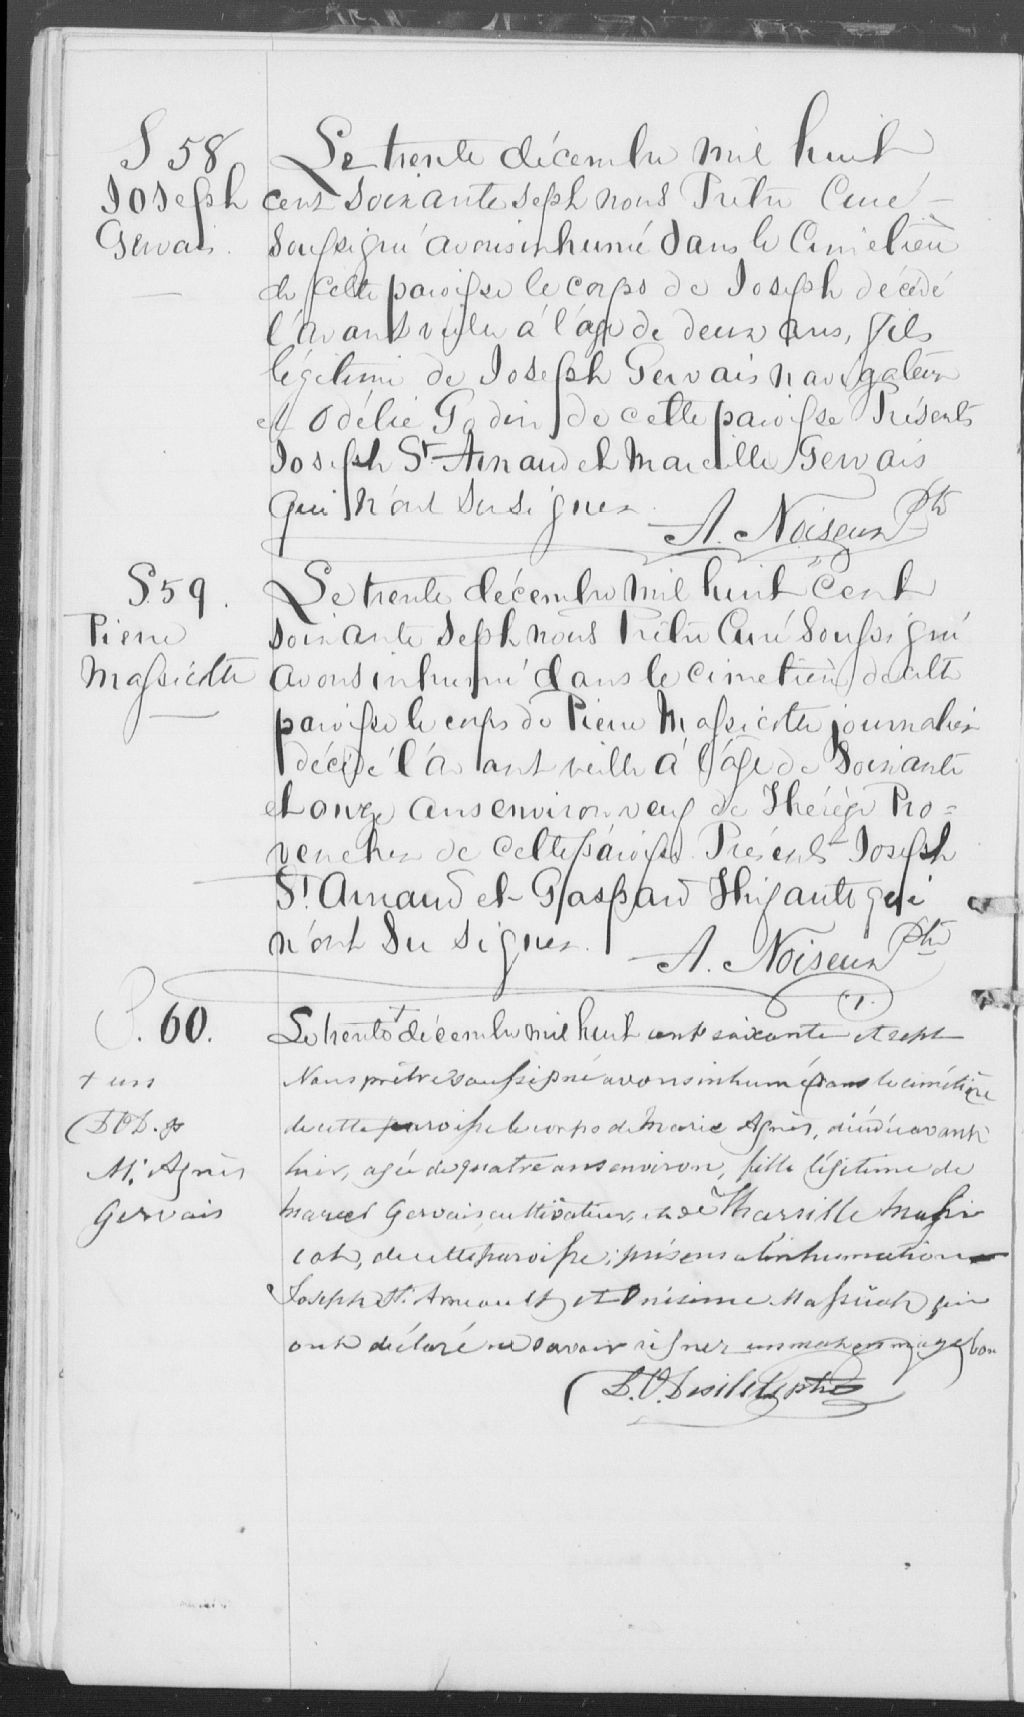 S 58
Joseph
Gervais.
Le trente décembre mil huit
cent soixante sept nous Prêtre Curé
soussigné avons inhumé dans le Cimetière
de cette paroisse le corps de Joseph décédé
l'avant veille à l'age de deux ans, fils
légitime de Joseph Gervais navigateur
et Odélie Godin de cette paroisse Présents
Joseph St Arnaud et Marcille Gervais
qui n'ont su signer.
A. Noiseux Ptre
S 59.
Pierre
Massicotte
Le trente décembre mil huit cent
soixante sept nous Prêtre Curé soussigné
avons inhumé dans le cimetière de cette
paroisse le corps de Pierre Massicotte journalier
décédé l'avant veille à l'âge de soixante
et onze ans environ veuf de Thérèse Pro=
vencher de cette paroisse. Présents Joseph
St. Arnaud et Gaspard Thifaut qui
n'ont su signer.
A. Noiseux Ptre
S. 60.
+ un
D.O.D. p
M. Agnès
Gervais
Le trente + décembre mil huit cent soixante et sept
Nous prêtre soussigné avons inhumé dans le cimétière
de cette paroisse le corps de Marie Agnès, décédée avant
hier, agée de quatre ans environ, fille légitime de
Marcel Gervais cultivateur, et de Tharsille Massi
cot, de cette paroisse; présens a l'inhumation
Joseph St. Arneault et Onésime Massicot qui
ont déclaré ne savoir signer un mot en marge bon
D.O. Desilets ptre